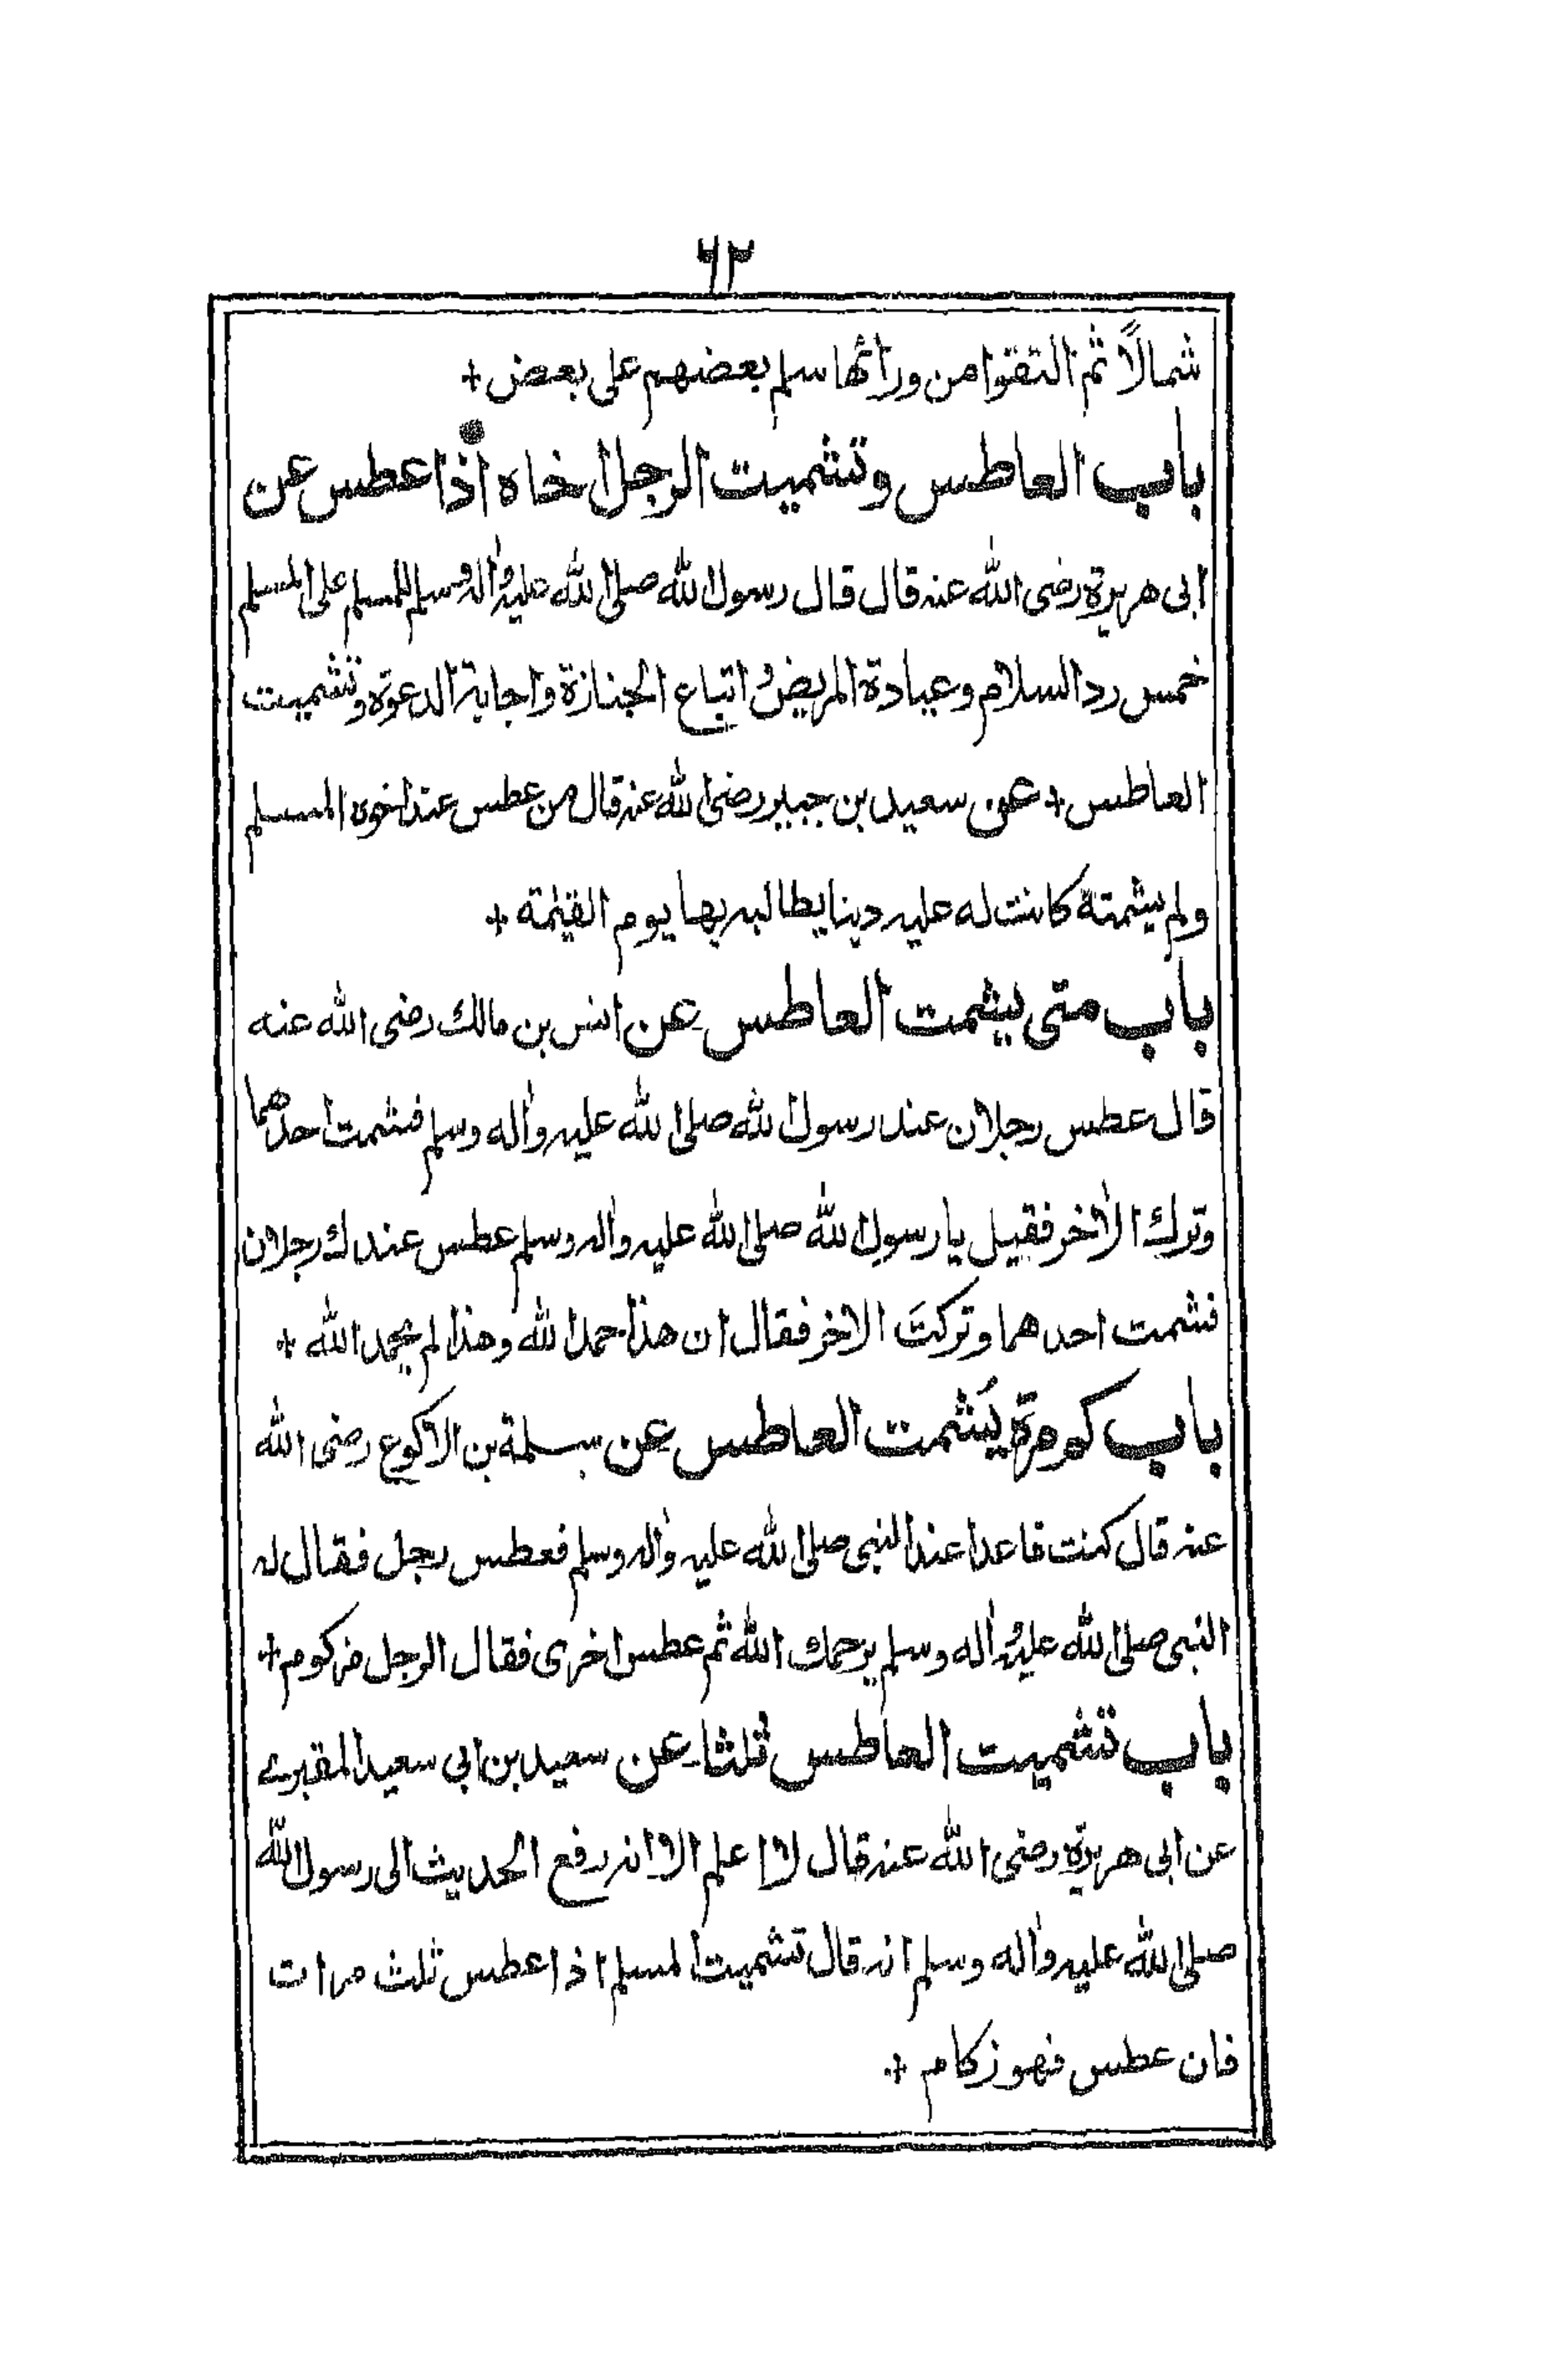 ٦٢
شمالاً ثم التقوا من ورائها سلم بعضهم على بعض +
باب العاطس وتشميت الرجل اخاه اذا عطس عن
ابى هريرة رضى الله عنه قال قال رسول الله صلى الله عليه واٰله وسلم للمسلم على المسلم
خمس رد السلام وعيادة المريض و اتباع الجنازة واجابة الدعوة وتشميت
العاطس + عن سعيد بن جبير رضى الله عنه قال من عطس عند اخوه المسلم
ولم يشمتة كانت له عليه دينا يطالبه بها يوم القيٰمة +
باب متى يشمت العاطس عن انس بن مالك رضى الله عنه
قال عطس رجلان عند رسول الله صلى الله عليه واٰله وسلم فشمت احدهما
وترك الاٰخر فقيل يا رسول الله صلى الله عليه واٰله وسلم عطس عندك رجلان
فشمت احدهما وتركتَ الاخر فقال ان هذا حمد الله وهذا لم يحمد الله +
باب كو مرة يُشمت العاطس عن سلمة بن الاكوع رضى الله
عنه قال كنت قاعدا عند النبى صلى الله عليه واٰله وسلم فعطس رجل فقال له
النبى صلى الله عليه واٰله وسلم يرحمك الله ثم عطس اخرى فقال الرجل مزكوم +
باب تشميت العاطس ثلثا عن سعيد بن ابى سعيد المقبرے
عن ابى هريرة رضى الله عنه قال لا اعلم الا انه رفع الحديث الى رسول الله
صلى الله عليه واٰله وسلم انه قال تشميت المسلم اذا عطس ثلث مرات
فان عطس فهو زكام +